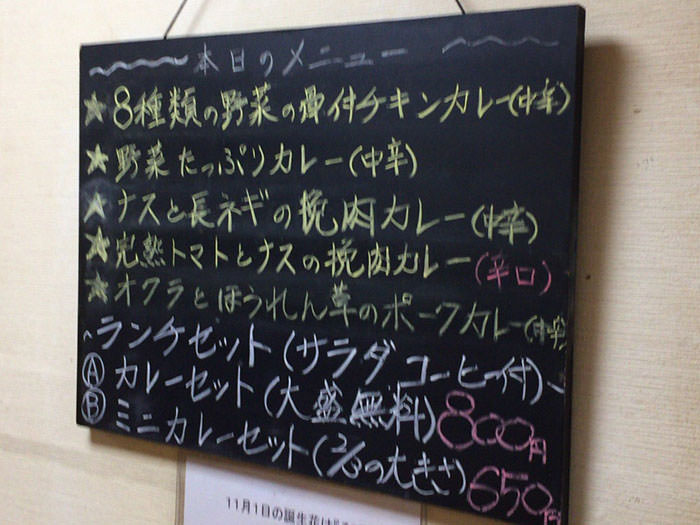 本日のメニュー
★8種類の野菜の骨付チキンカレー(中辛)
★野菜たっぷりカレー(中辛)
★ナスと長ネギの挽肉カレー(中辛)
★完熟トマトとナスの挽肉カレー(辛口)
★オクラとほうれん草のポークカレー(中辛)
~ランチセット(サラダコーヒー付)~
Ⓐカレーセット(大盛無料)800円
Ⓑミニカレーセット(2/3の大きさ)650円
11月1日の誕生花は